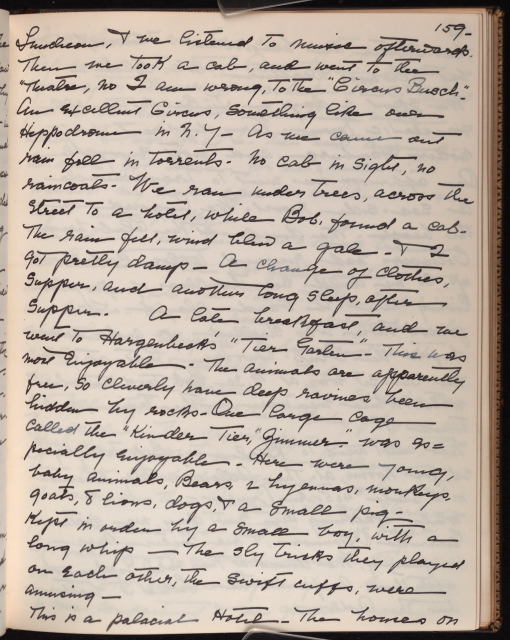 159-
Luncheon, & we listened to music afterwards.
Then we took a cab, and went to the
Theatre, no I am wrong, to the "Circus Busch"-
An excellent Circus, something like our
Hippodrome in N.Y- As we came out
rain fell in torrents- No cab in sight, no
raincoats- We ran under trees, across the
street to a hotel, while Bob, found a cab-
The rain fell, wind blew a gale- & I
got pretty damp- A change of clothes,
Supper, and another long sleep, after
Supper. A late breakfast, and we
went to Hargenbecks "Tier Garten"- This was
most enjoyable- The animals are apparently
free, so cleverly have deep ravines, been
hidden by rocks- One large cage
called the "Kinder Tier, Zimmer" was es=
pecially enjoyable- Here were young,
baby animals, Bears, 2 hyenas, monkeys,
goats, & lions, dogs, & a small pig-
Kept in order by a small boy, with a
long whip - The sly tricks they played
on each other, the swift cuffs, were
amusing-
This is a palacial Hotel- The homes on